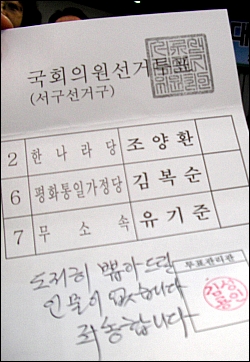 국회의원선거투표
(서구선거구)
2 한나라당 조양환
6 평화통일가정당 김복순
7 무소속 유기준
도저히 뽑아드릴
인물이 없습니다
죄송합니다
투표관리관